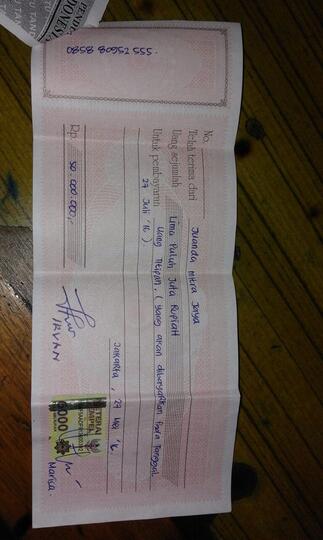 0858 80952 555.
No.
Telah terima dari Juanda Mitra Jaya
Uang sejumlah Lima Puluh Juta Rupiah
Untuk pembayaran Uang Titipan, (yang akan dibayarkan pada Tanggal
27 Juli '16).
Jakarta, 27 Mei '16.
Rp. 50.000.000,-
METERAI
TEMPEL
6000
IRVAN
Marisa.